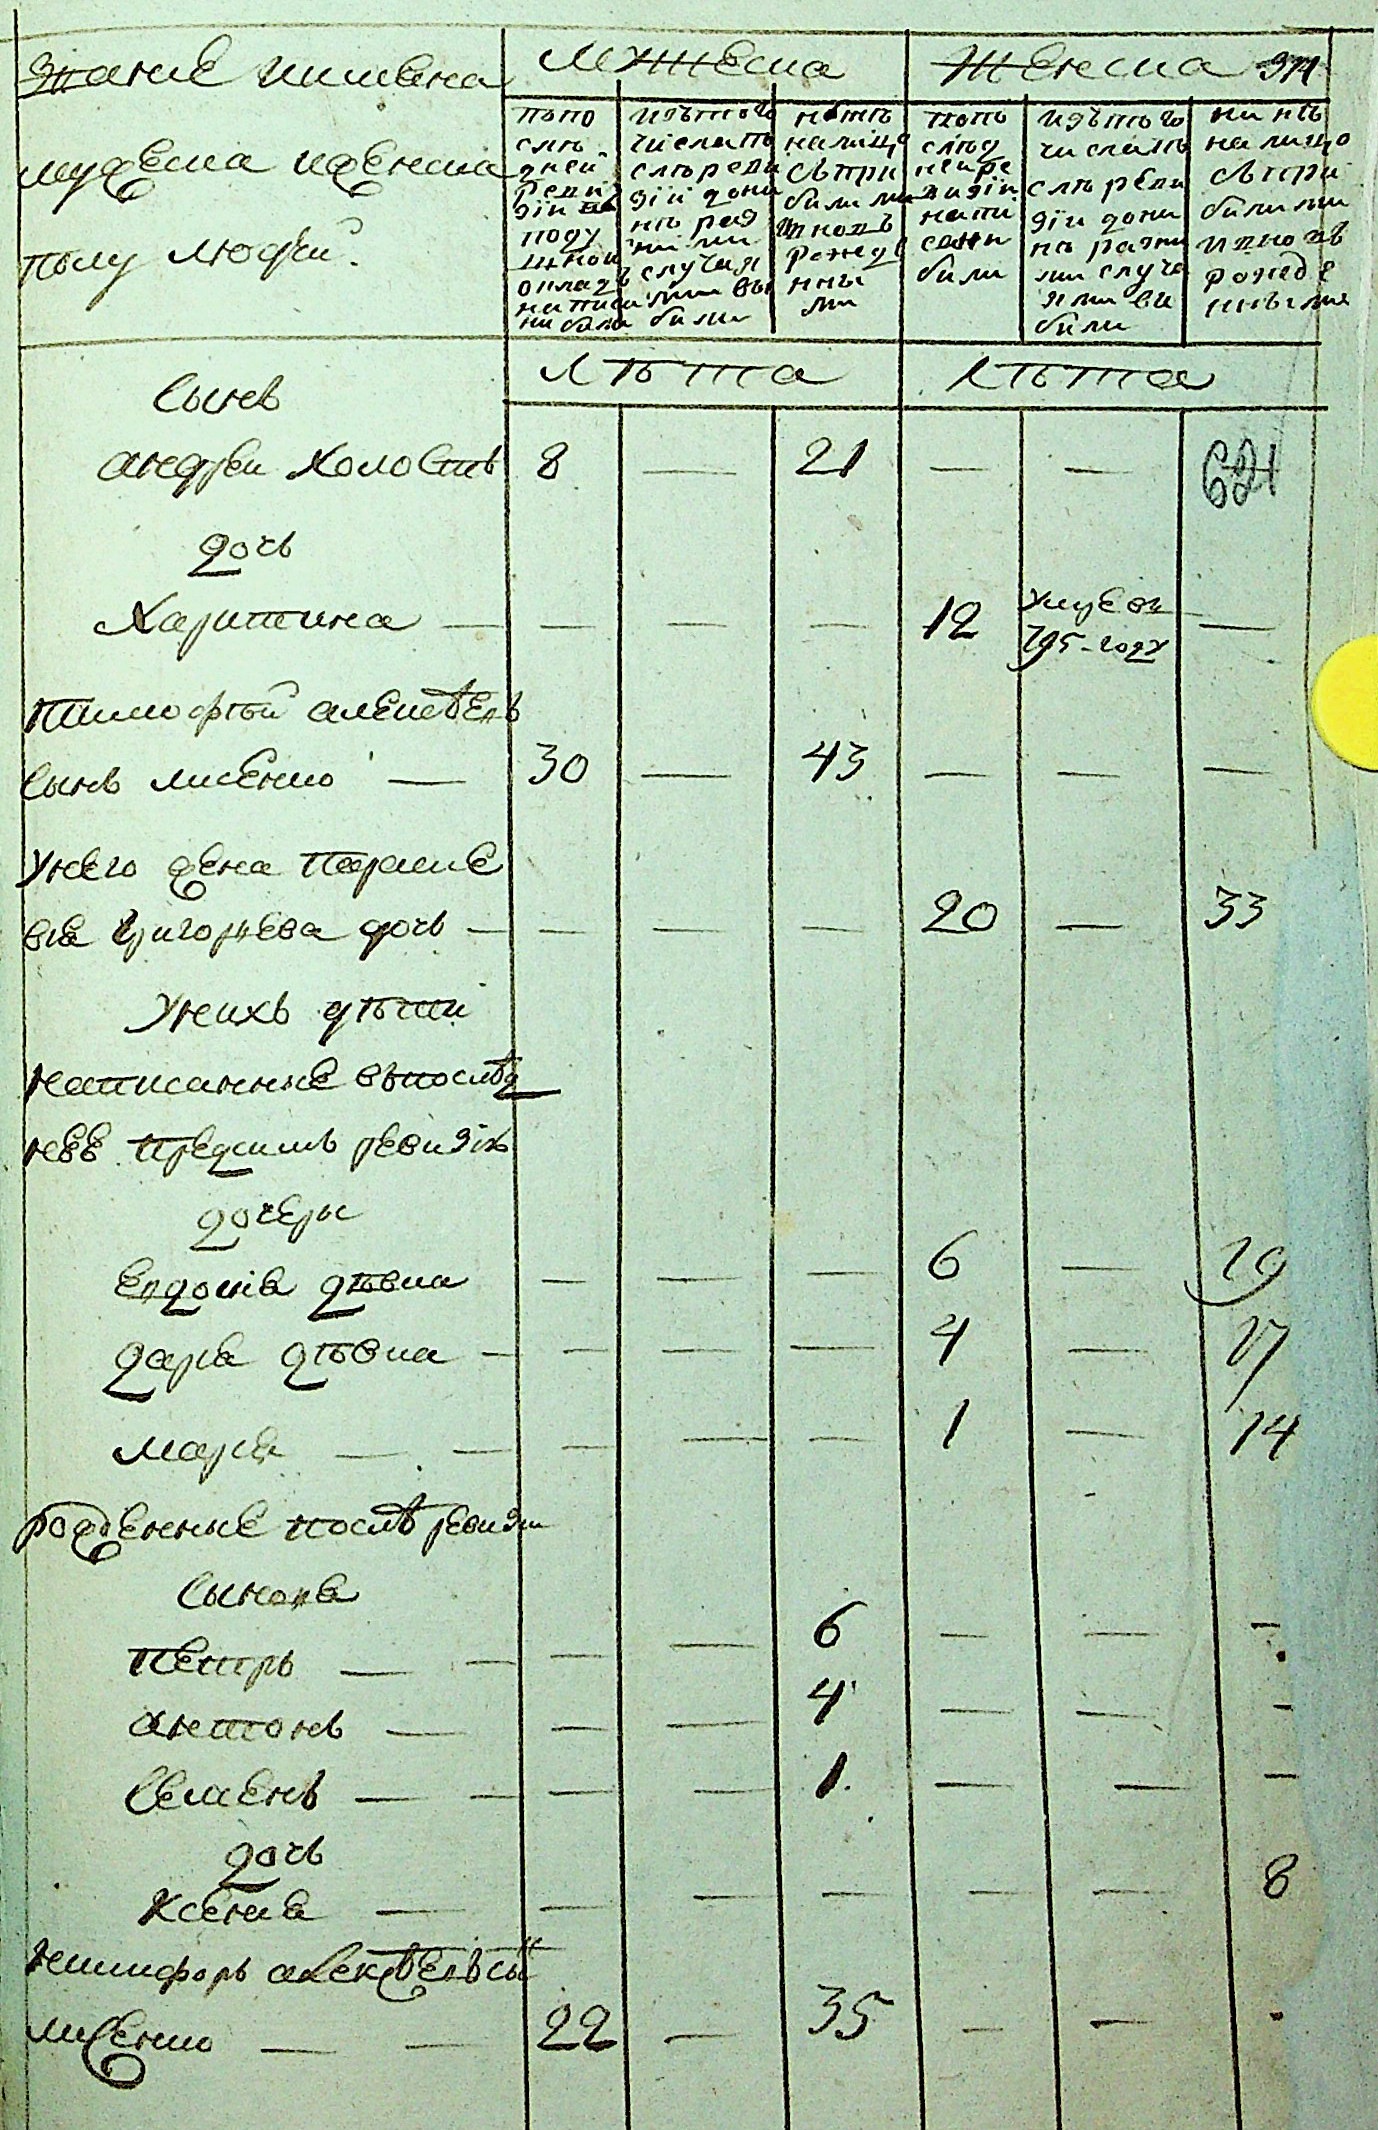 Звание иимена мужеска 374
женска
мужеска иженска
полу людей.
попо
слѣ
дней
реви
зіи
поду
шной
окладъ
написа
ни были
изътого
числапо
слѣреви
зіи дони
нѣ раз
ними
случая
ми вы
были
нѣтъ
налицо
съпри
были ми
иновъ
рожде
нны
ми
попо
слѣд
ней ре
визіи
напи
сани
били
изътого
числапо
слѣ реви
зіи дони
нѣ разни
ми случа
ями ви
били
ни нѣ
налицо
съпри
билими
иновъ
рожде
нными
лѣта лѣта
сынъ
андреи холостъ 8 — 21 — — 621
дочь
Харитина — — — — 12 умре въ —
795-году
Тимофѣй алексѣевъ
сынъ лисенко — 30 — 43 — — —
Унего жена Параске
ва Григорьева дочь — — — — 20 — 33
Унихъ дѣти
написанные впослѣд
ней предсимъ ревизіи
дочеры
Евдокія дѣвка — — — 6 — 19
дарья дѣвка — — — — 4 — 17
марья — — — — — 1 — 14
рожденные послѣ ревизіи
сынова
Петръ — — — — 6 — — —
антонъ — — — 4 — — —
Семенъ — — — — 1. — — —
дочь
Ксенія — — — — — — 8
никифоръ алексѣевъ сы
лисенко — — 22 — 35 — —